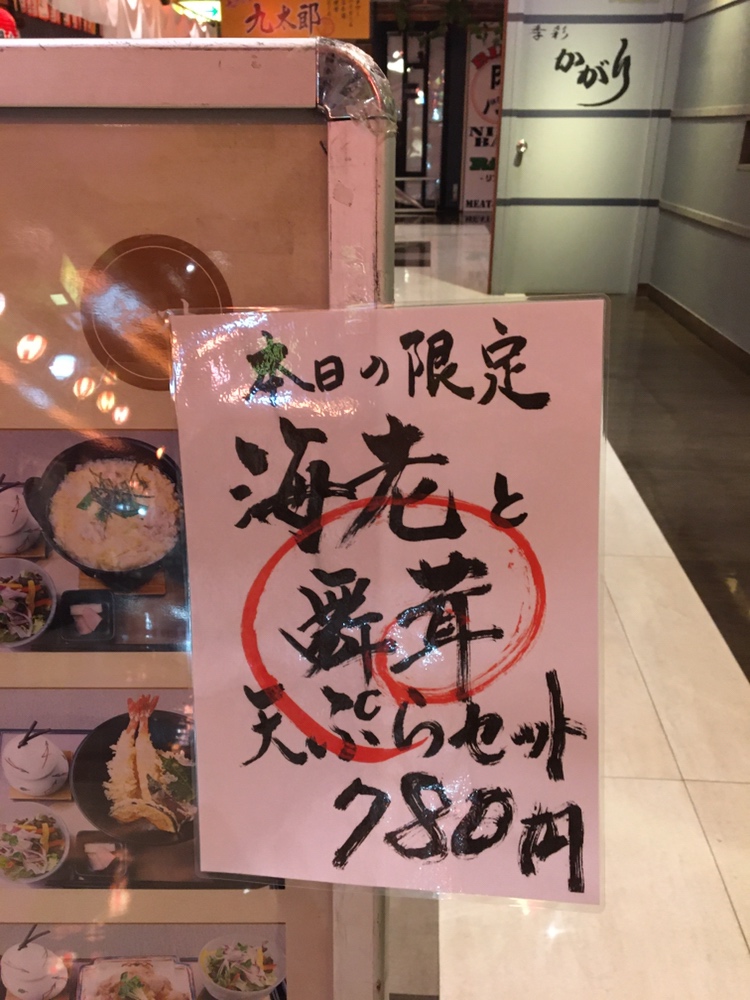 九太郎
季彩
かがり
MEAT
本日の限定
海老と
舞茸
天ぷらセット
780円